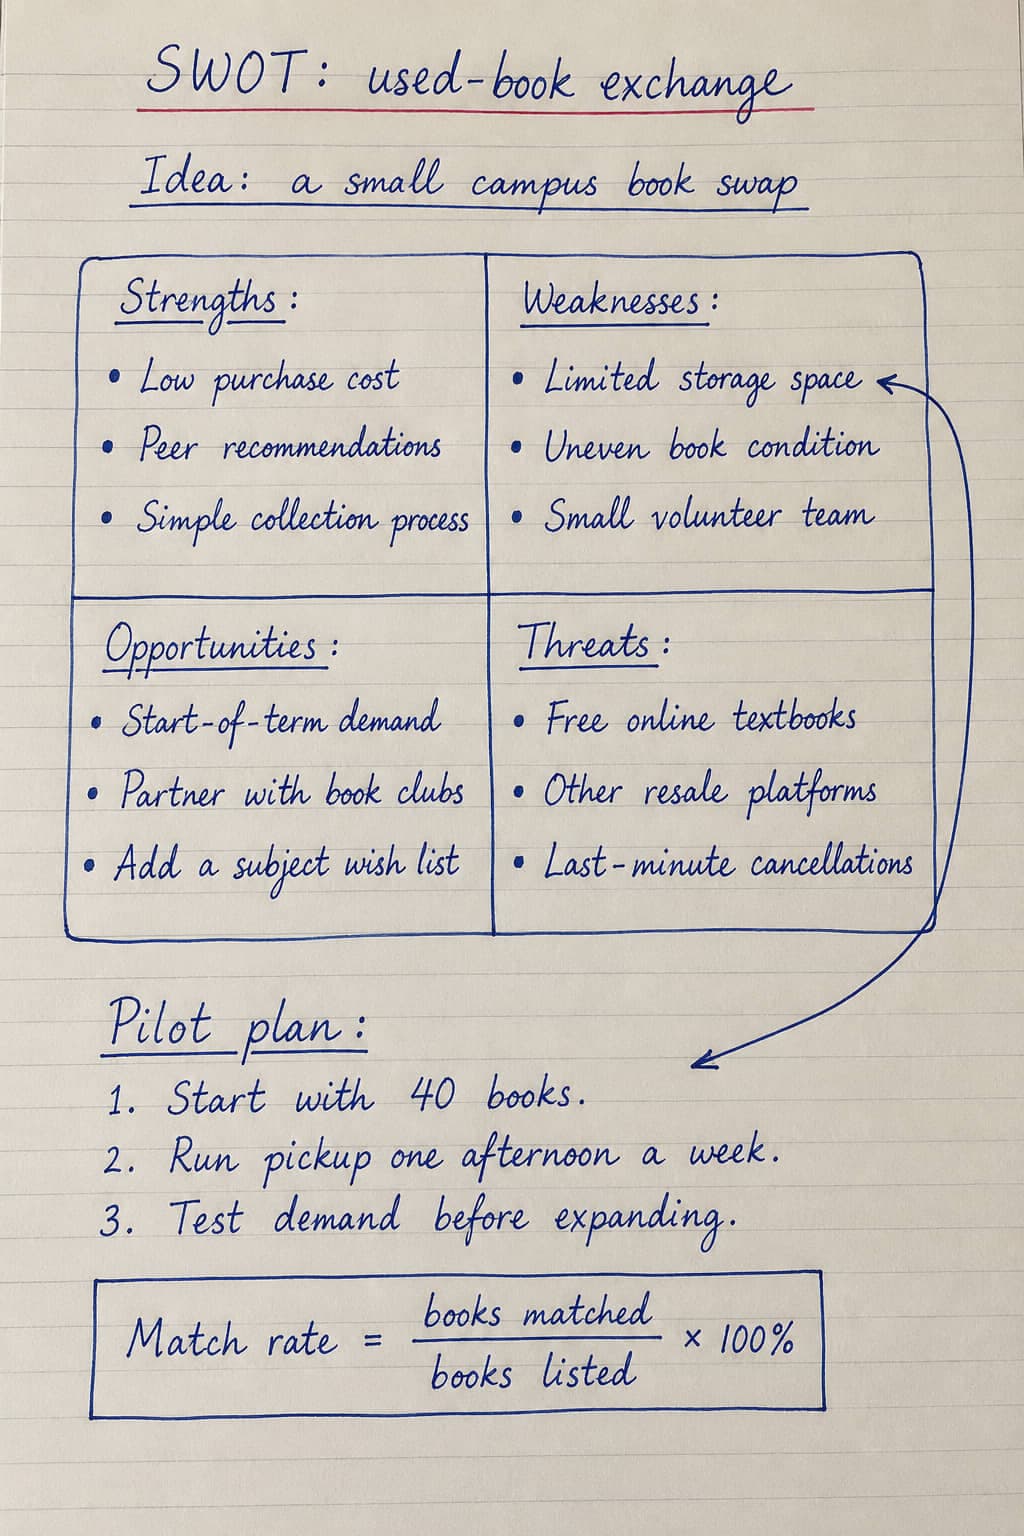 SWOT: used-book exchange
Idea: a small campus book swap
Strengths:
• Low purchase cost
• Peer recommendations
• Simple collection process
Weaknesses:
• Limited storage space
• Uneven book condition
• Small volunteer team
Opportunities:
• Start-of-term demand
• Partner with book clubs
• Add a subject wish list
Threats:
• Free online textbooks
• Other resale platforms
• Last-minute cancellations
Pilot plan:
1. Start with 40 books.
2. Run pickup one afternoon a week.
3. Test demand before expanding.
Match rate = books matched / books listed × 100%